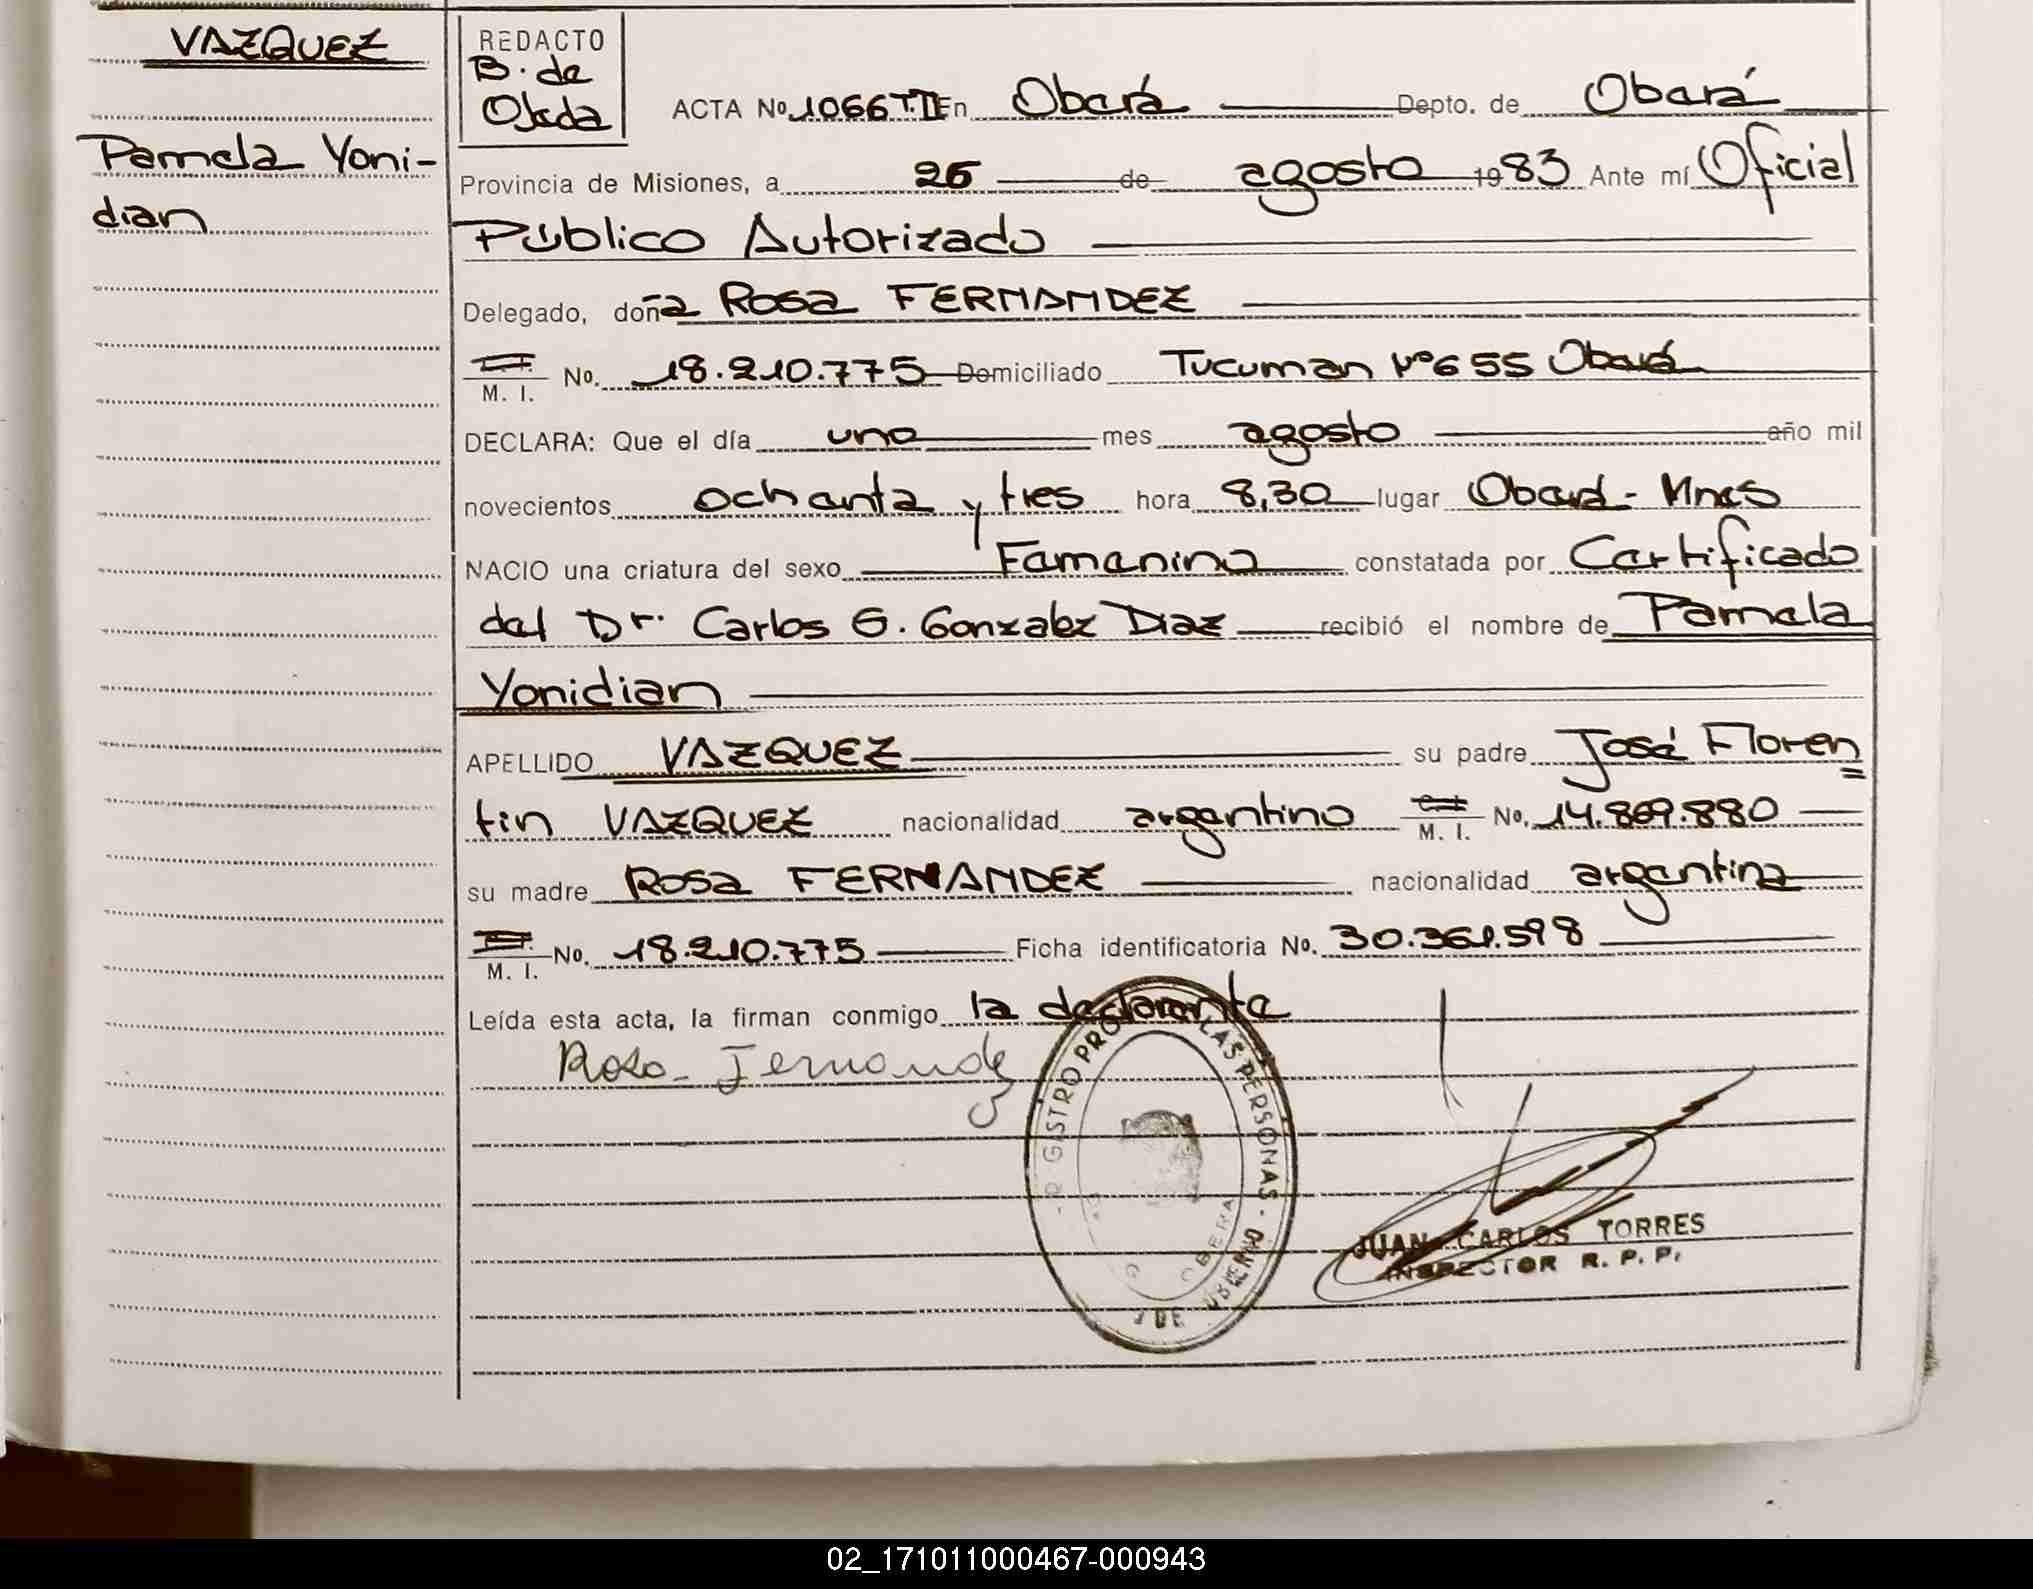 VAZQUEZ
Pamela Yoni-
dian
REDACTO
B. de
Ojeda
ACTA No. 1066 T.II En Oberá Depto. de Oberá
Provincia de Misiones, a 26 de agosto 1983 Ante mí Oficial
Público Autorizado
Delegado, doña Rosa FERNANDEZ
M. I. No. 18.210.775 Domiciliado Tucuman Nº 655 Oberá
DECLARA: Que el día uno mes agosto año mil
novecientos ochenta y tres hora 8,30 lugar Oberá - Mnes
NACIO una criatura del sexo Femenino constatada por Certificado
del Dr. Carlos G. Gonzalez Diaz recibió el nombre de Pamela
Yonidian
APELLIDO VAZQUEZ su padre José Floren
tin VAZQUEZ nacionalidad argentino M. I. No. 14.869.880
su madre Rosa FERNANDEZ nacionalidad argentina
M. I. No. 18.210.775 Ficha identificatoria No. 30.361.598
Leída esta acta, la firman conmigo la declarante
Rosa Fernandez
GISTRO PRO LAS PERSONAS
JUAN CARLOS TORRES
INSPECTOR R. P. P.
02_171011000467-000943